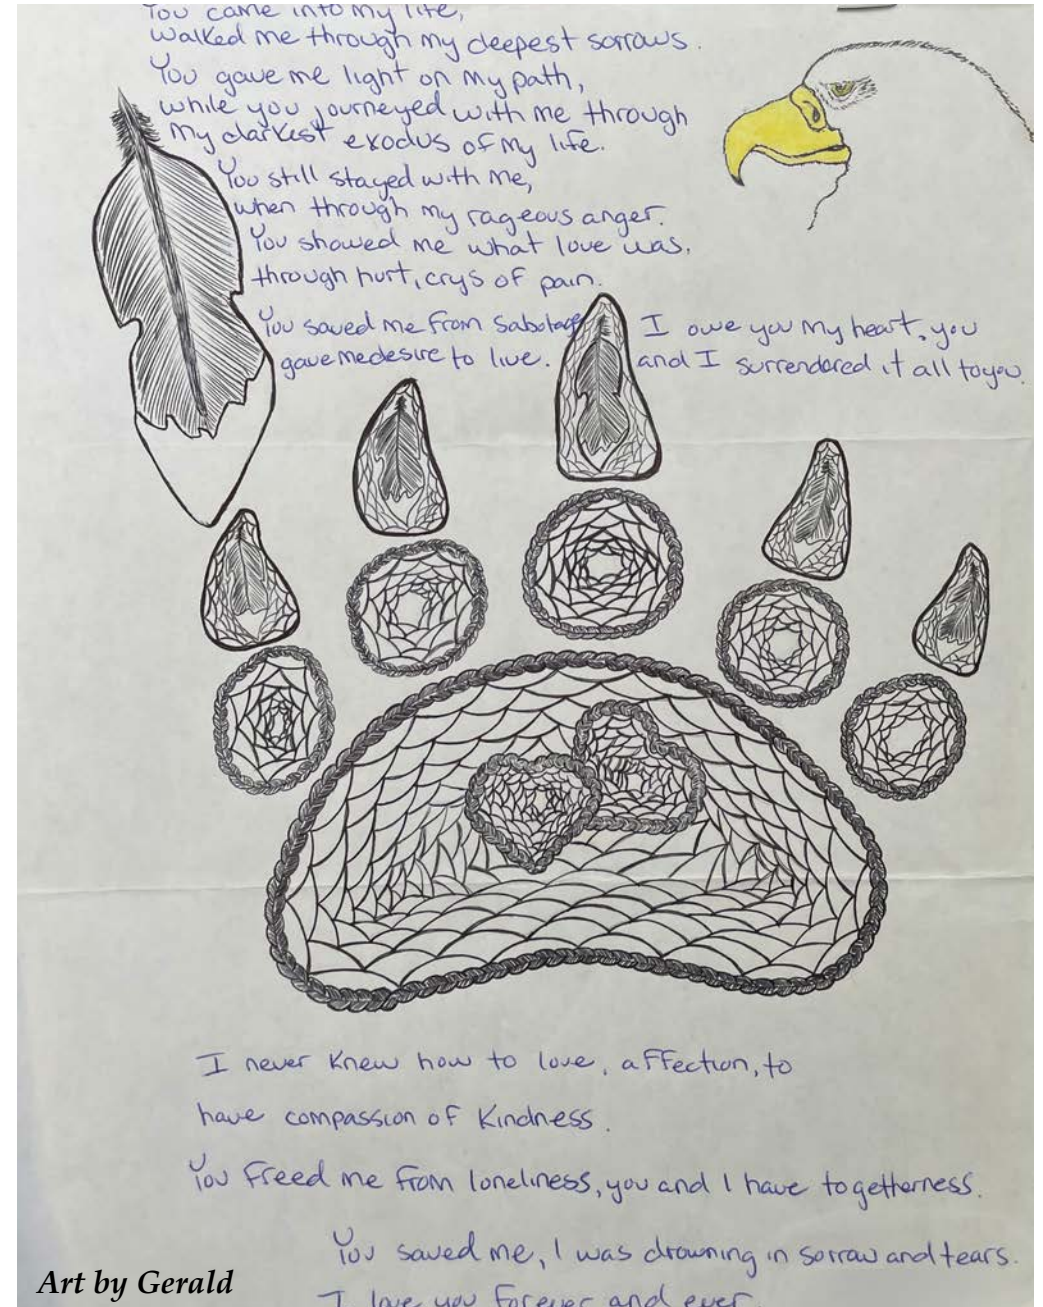 You came into my life,
walked me through my deepest sorrows.
You gave me light on my path,
while you journeyed with me through
my darkest exodus of my life.
You still stayed with me,
when through my rageous anger.
You showed me what love was,
through hurt, crys of pain.
You saved me from sabotage
gave me desire to live.
I owe you my heart, you
and I surrendered it all to you.
I never knew how to love, affection, to
have compassion of kindness.
You freed me from loneliness, you and I have togetherness.
You saved me, I was drowning in sorrow and tears.
I love you forever and ever.
Art by Gerald